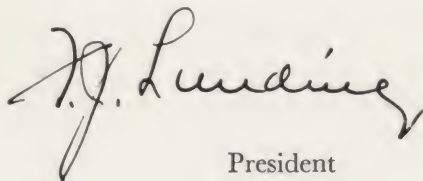 F.J. Lunding
President